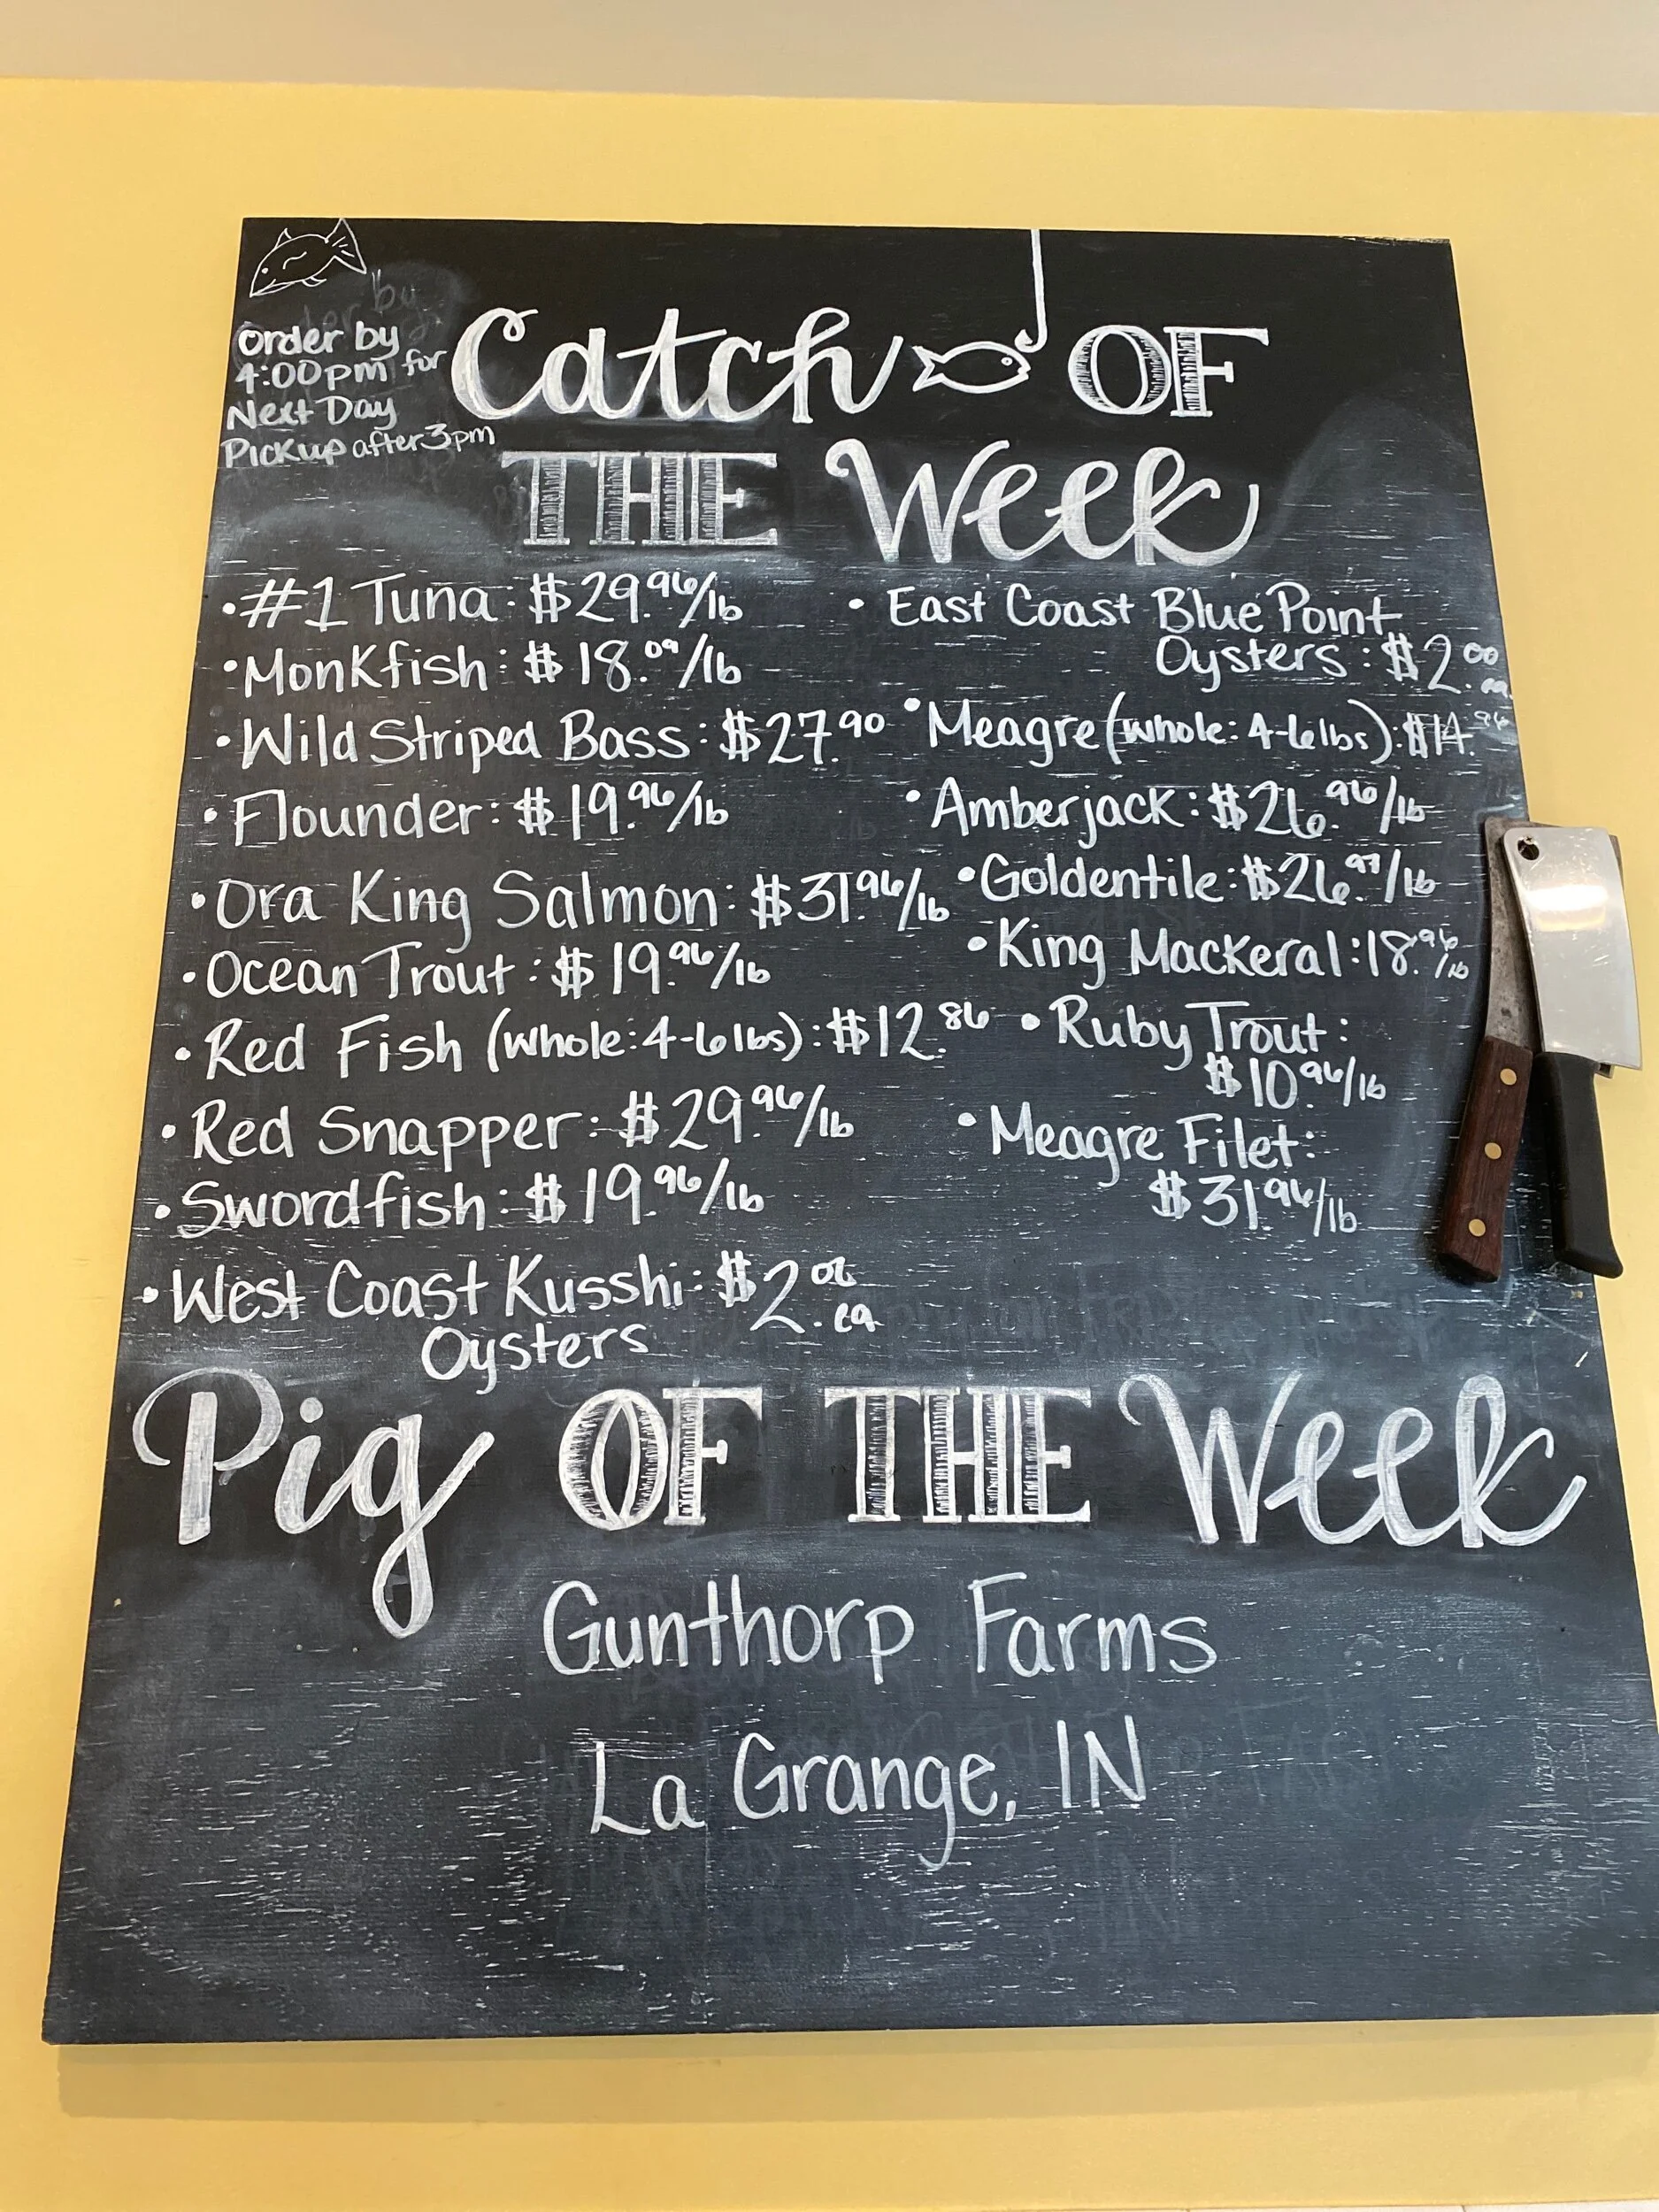 Order by
4:00pm for
Next Day
Pickup after 3pm
Catch OF
THE Week
•#1 Tuna: $29.96/lb
•Monkfish: $18.09/lb
•Wild Striped Bass: $27.90
•Flounder: $19.96/lb
•Ora King Salmon: $31.96/lb
•Ocean Trout: $19.96/lb
•Red Fish (whole: 4-6lbs): $12.86
•Red Snapper: $29.96/lb
•Swordfish: $19.96/lb
•West Coast Kusshi: $2. ea
Oysters
•East Coast Blue Point
Oysters: $2.00 ea.
•Meagre (whole: 4-6lbs): $14.96
•Amberjack: $26.96/lb
•Goldentile: $26.97/lb
•King Mackeral: 18.96/lb
•Ruby Trout:
$10.96/lb
•Meagre Filet:
$31.96/lb
Pig OF THE Week
Gunthorp Farms
La Grange, IN